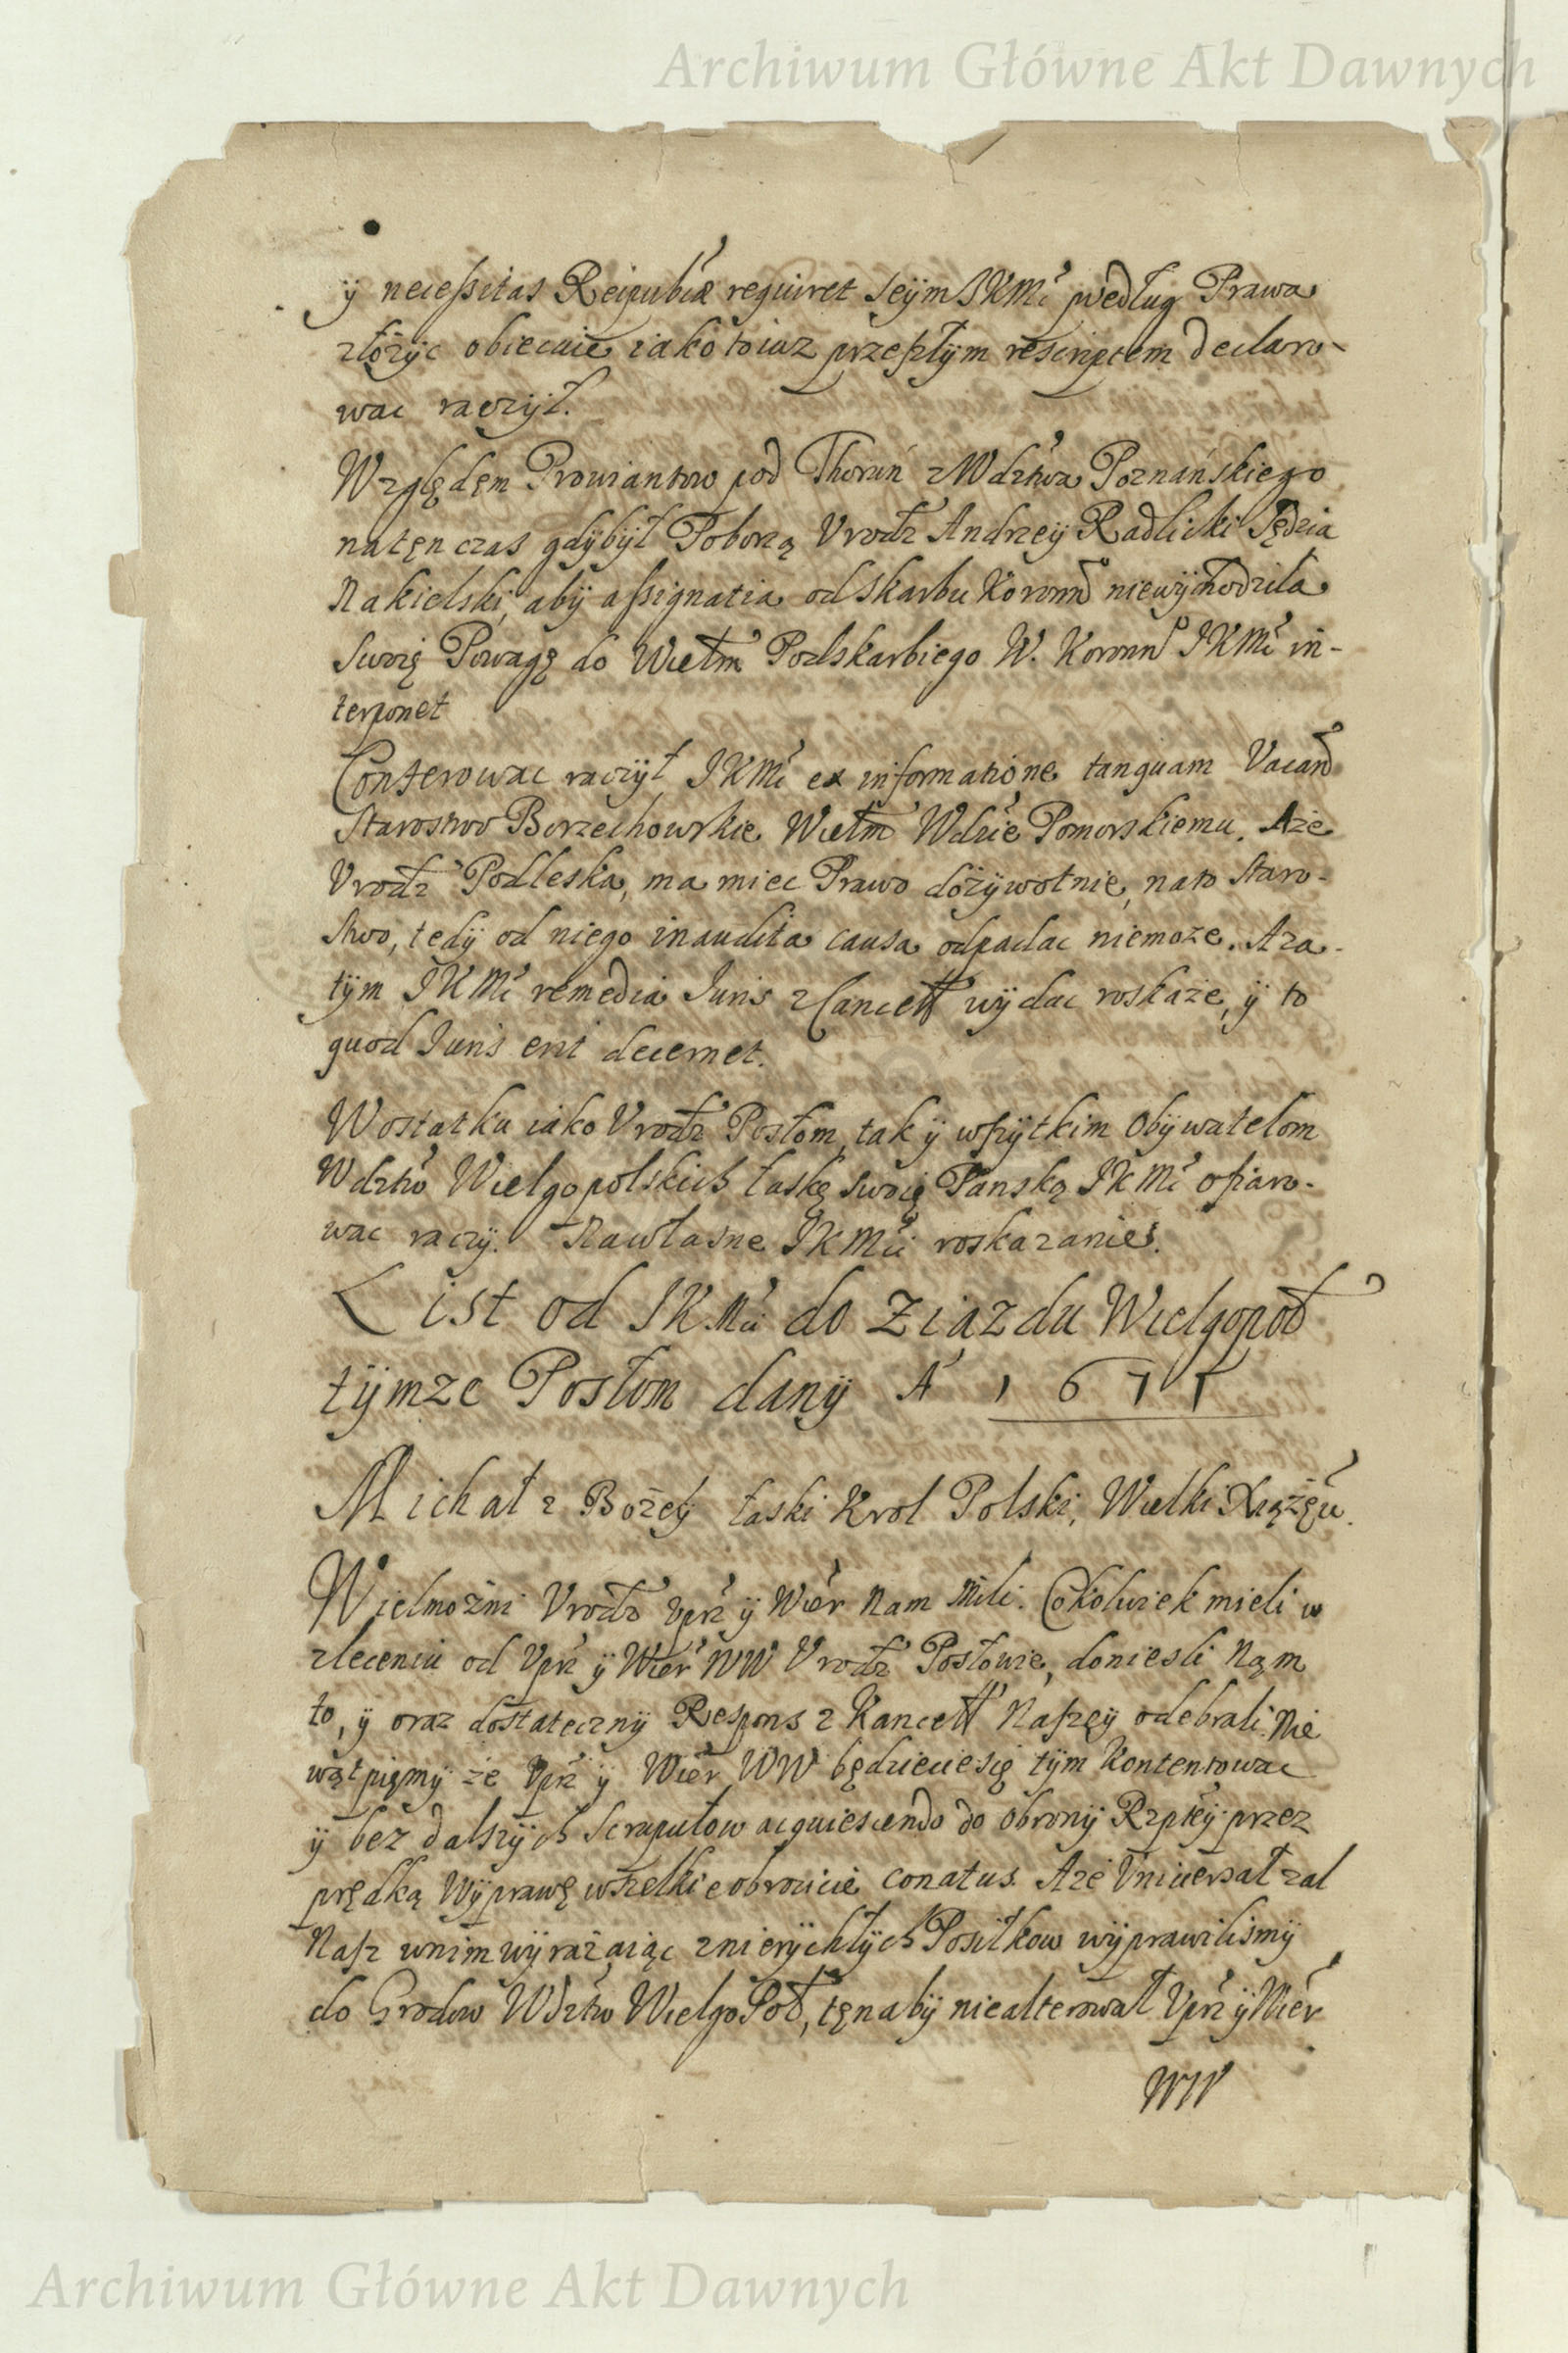 Archiwum Główne Akt Dawnych
ÿ necessitas Reipublcæ requiret Seÿm JKMć według Prawa
złożÿc obiecuie iako to iuz przeszłÿm rescriptem declaro-
wac raczÿł.
Względęm Prowiantow pod Thoruń z Wdztwa Poznańskiego
natęn czas gdÿbÿł Poborzą Vrodz Andrzeÿ Radlicki Sędzia
Nakielski, abÿ assignatia od Skarbu Koronn niewÿchodziła
Swoię Powagę do Wielm Podskarbiego W. Koronn JKMć in-
terponet
Conferowac raczÿł JKMć ex informatione tanquam Vacand
Starostwo Borzechowskie Wielm Wdzie Pomorskiemu. Aże
Vrodz Podleska, ma miec Prawo dożÿwotnie, na to Staro-
stwo, tedÿ od niego inaudita causa odpadac niemoże. Aza-
tÿm JKMć remedia Iuris z Cancell wÿdac roskaże, ÿ to
quod Iuris erit decernet.
Wostatku iako Vrodz Posłom, tak ÿ wszÿtkim Obÿwatelom
Wdztw Wielgopolskich łaskę swoię Panską JKMć ofiaro-
wac raczÿ. Nawłasne JKMći roskazanie.
List od JKMći do Ziązdu Wielgopol
tÿmze Posłom danÿ A 1671
Michał z Bożeÿ łaski Krol Polski, Wielki Xiążęć.
Wielmożni Vrodz Vprz ÿ Wier Nam Mili. Cokolwiek mieli w
zleceniu od Vprz ÿ Wier WW Vrodz Posłowie, doniesli Nąm
to, ÿ oraz dostatecznÿ Respons z Kancell Naszeÿ odebrali. Nie
wątpięmÿ że Vprz ÿ Wier WW będziecie się tÿm kontentowac
ÿ bez dalszÿch Scrupułow acquiescendo do obronÿ Rzpteÿ przez
prędką Wÿprawę wszelkie obrocicie conatus. Aże Vniuersał zal
Nasz wnim wÿrażaiąc znierÿchłÿch Posiłkow wÿprawilismÿ
do Grodow Wdztw WielgoPol, tęn abÿ niealterował Vprz ÿ Wier
WW
Archiwum Główne Akt Dawnych